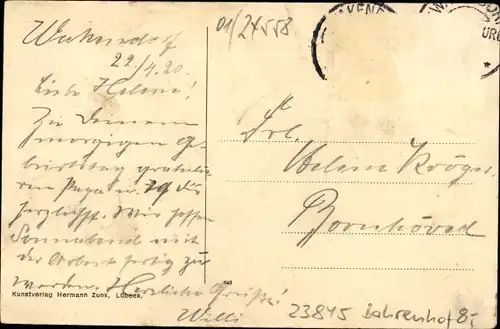 01/24558
Wakendorf
22/4.20.
Liebe Helene!
Zu Deinem
morgigen Ge-
burtstag gratulie-
ren Papa u. ich Dir
herzlichst. Wir hoffen
Sonnabend mit
der Arbeit fertig zu
werden. Herzliche Grüße!
Willi
Frl.
Helene Kröger
Bornhöved
643
Kunstverlag Hermann Zunk, Lübeck.
23845 Bahrenhof 8,-